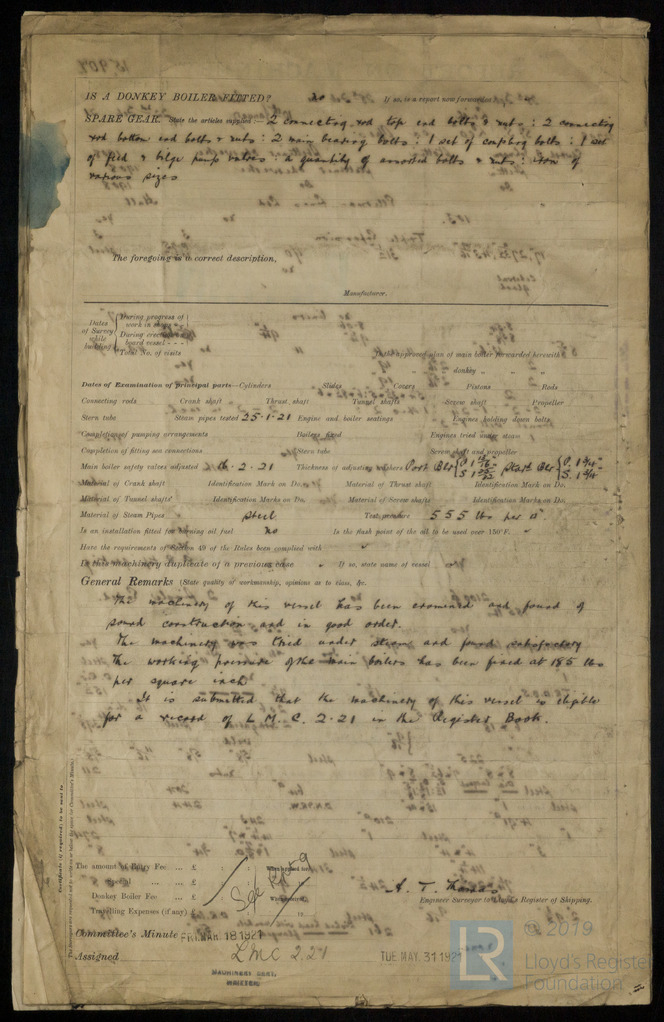 IS A DONKEY BOILER FITTED? no If so, is a report now forwarded?
SPARE GEAR. State the articles supplied:— 2 connecting rod top end bolts & nuts : 2 connecting
rod bottom end bolts & nuts : 2 main bearing bolts : 1 set of coupling bolts : 1 set
of feed & bilge pump valves : a quantity of assorted bolts & nuts : iron of
various sizes
The foregoing is a correct description,
Manufacturer.
Dates of Survey while building
During progress of work in shops
During erection on board vessel
Total No. of visits
Is the approved plan of main boiler forwarded herewith
" " " donkey " " "
Dates of Examination of principal parts—Cylinders Slides Covers Pistons Rods
Connecting rods Crank shaft Thrust shaft Tunnel shafts Screw shaft Propeller
Stern tube Steam pipes tested 25·1·21 Engine and boiler seatings Engines holding down bolts
Completion of pumping arrangements Boilers fixed Engines tried under steam
Completion of fitting sea connections Stern tube Screw shaft and propeller
Main boiler safety valves adjusted 16·2·21 Thickness of adjusting washers Port Blr Starb Blr
Material of Crank shaft Identification Mark on Do. Material of Thrust shaft Identification Mark on Do.
Material of Tunnel shafts Identification Marks on Do. Material of Screw shafts Identification Marks on Do.
Material of Steam Pipes Steel Test pressure 555 lbs per □"
Is an installation fitted for burning oil fuel no Is the flash point of the oil to be used over 150°F.
Have the requirements of Section 49 of the Rules been complied with
Is this machinery duplicate of a previous case If so, state name of vessel
General Remarks (State quality of workmanship, opinions as to class, &c.
The machinery of this vessel has been examined and found of
sound construction and in good order.
The machinery was tried under steam and found satisfactory
The working pressure of the main boilers has been fixed at 185 lbs
per square inch
It is submitted that the machinery of this vessel is eligible
for a record of L.M.C. 2·21 in the Register Book.
Certificate (if required) to be sent to
The amount of Entry Fee ... £
Special ... £
Donkey Boiler Fee ... £
Travelling Expenses (if any) £
See Rpt 9
A. T. Thomas
Engineer Surveyor to Lloyd's Register of Shipping.
Committee's Minute FRI. MAR. 18 1921
Assigned LMC 2.21 TUE. MAY. 31 1921
MACHINERY CERT.
WRITTEN.
© 2019
LR
Lloyd's Register
Foundation